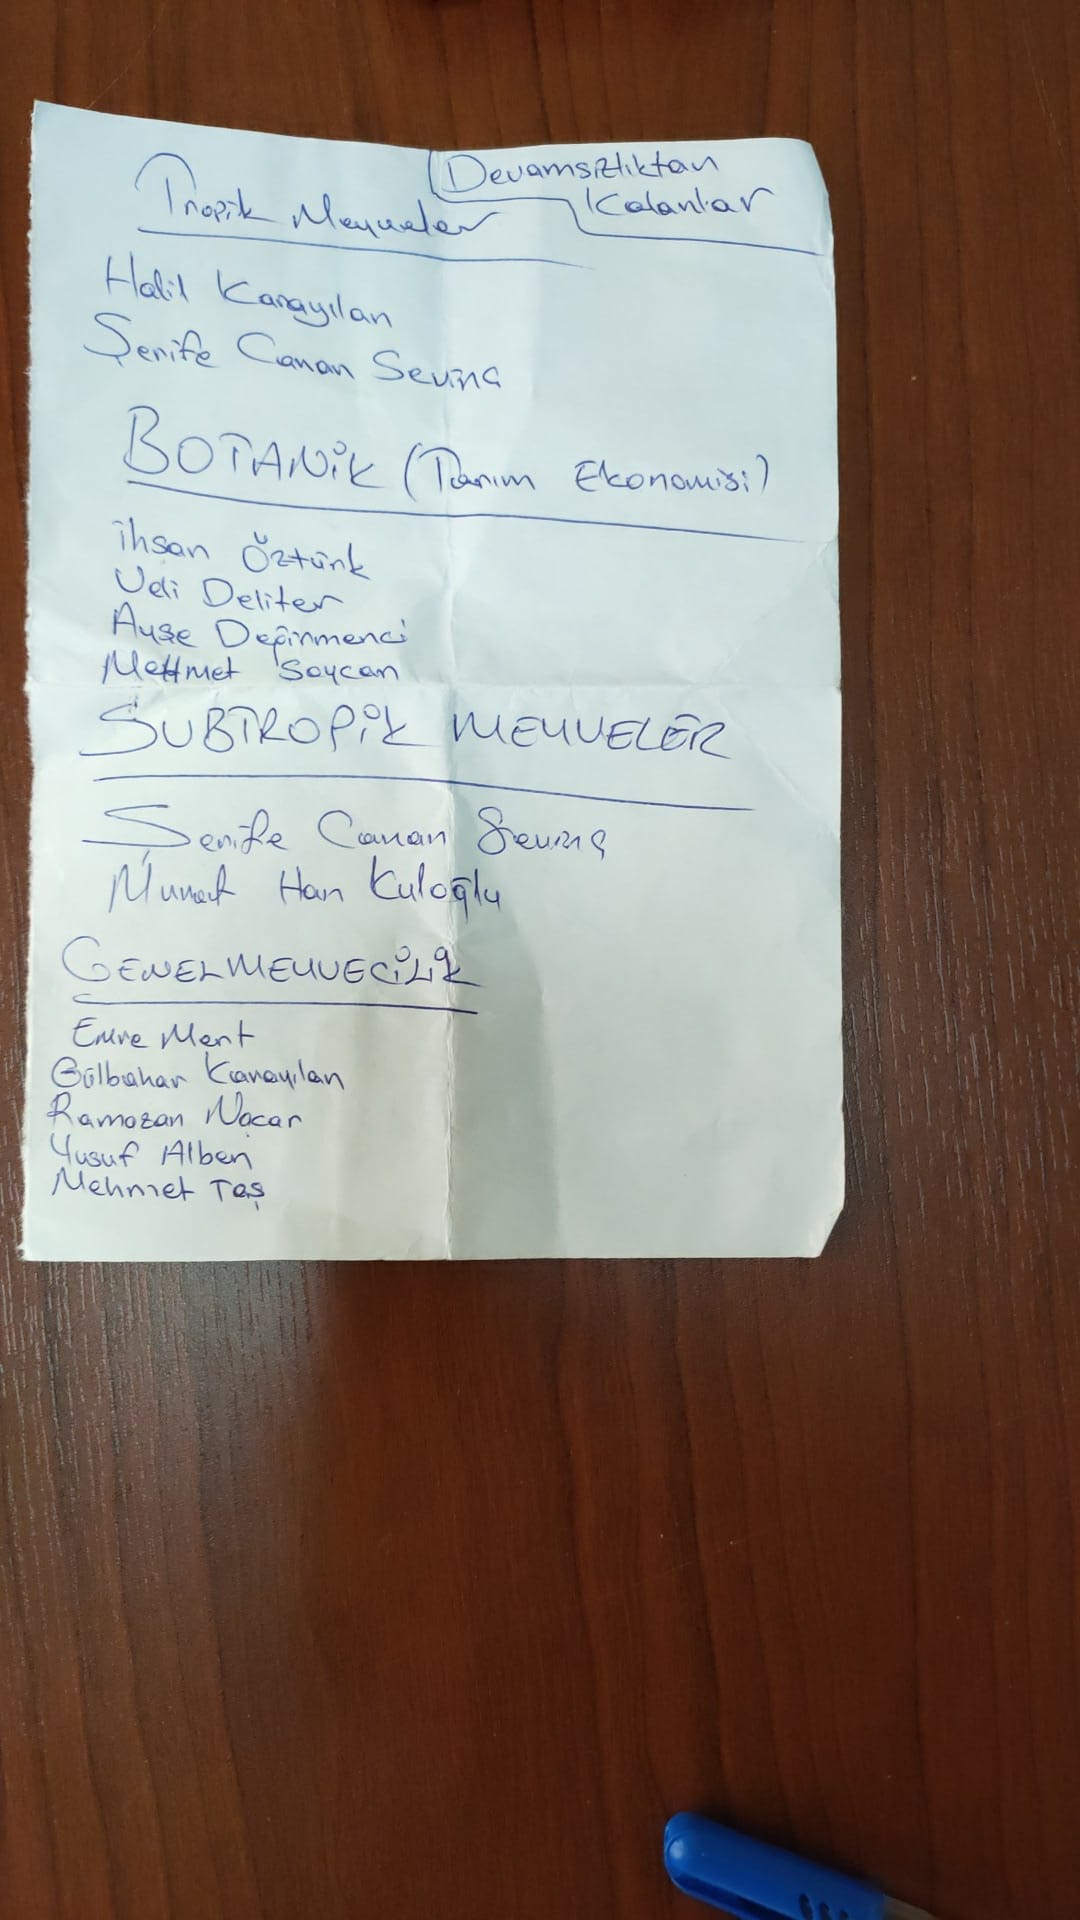 Devamsızlıktan
Kalanlar
Tropik Meyveler
Halil Karayılan
Şerife Canan Sevinç
BOTANİK (Tarım Ekonomisi)
İhsan Öztürk
Veli Deliter
Ayşe Değirmenci
Mehmet Soycan
SUBTROPİK MEYVELER
Şerife Canan Sevinç
Murat Han Kuloğlu
GENEL MEYVECİLİK
Emre Mert
Gülbahar Karayılan
Ramazan Naçar
Yusuf Alben
Mehmet Taş